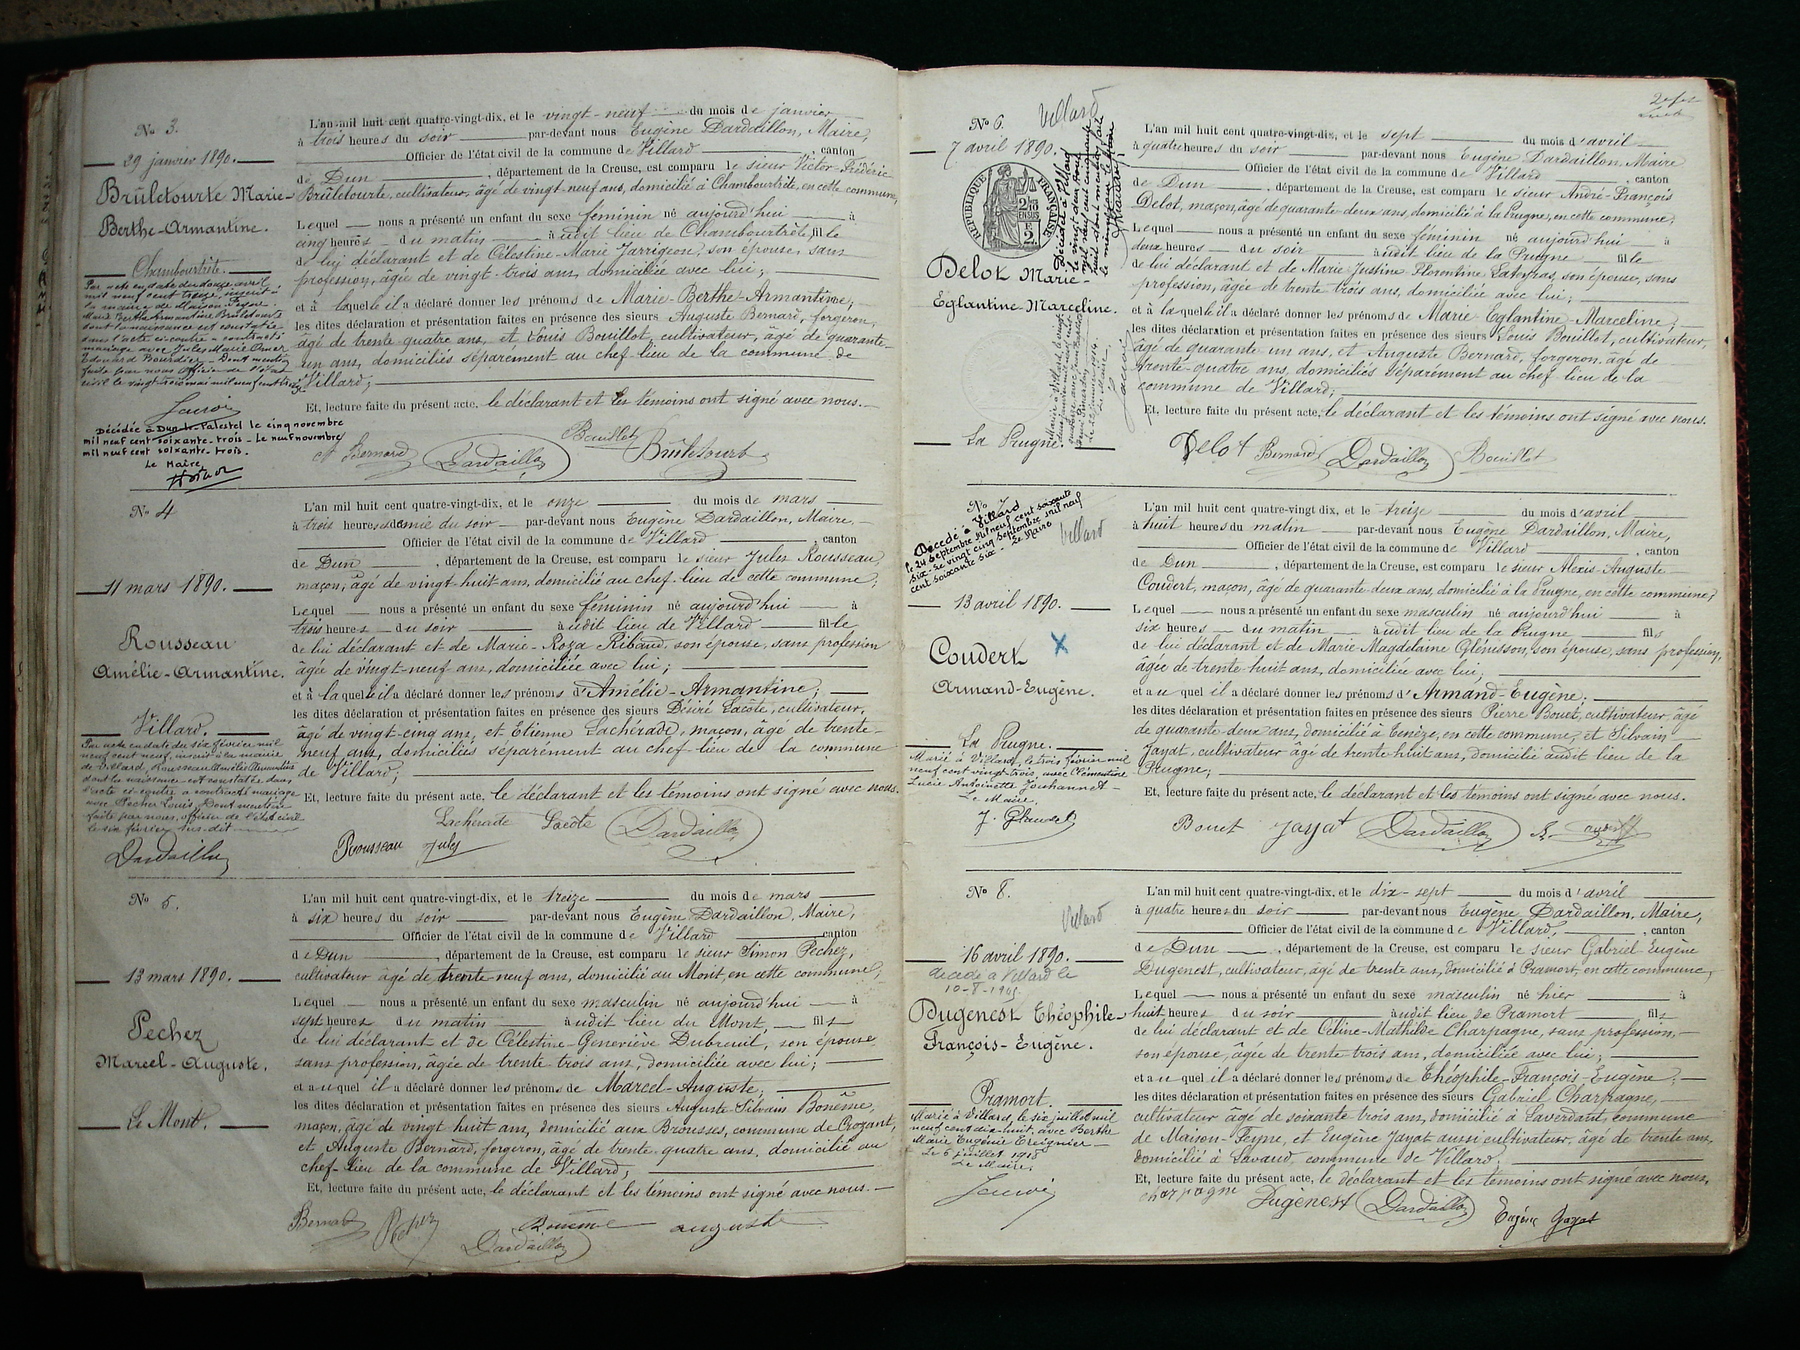 No 3.
29 janvier 1890.
Brûletourte Marie-
Berthe-Armantine.
Chambourtrête.
Par acte en date du douze avril
mil neuf cent treize, inscrit à
la mairie de Maison-Feyne
Marie Berthe Armantine Brûletourte
dont la naissance est constatée
dans l'acte ci-contre a contracté
mariage avec Jules Marie Omer
Edouard Bourdier. Dont mention
faite par nous Officier de l'état
civil le vingt trois mai mil neuf cent treize
Décédée à Dun-le-Palestel le cinq novembre
mil neuf cent soixante-trois - Le neuf novembre
mil neuf cent soixante trois.
Le Maire,
L'an mil huit cent quatre-vingt-dix, et le vingt-neuf du mois de janvier
à trois heures du soir par-devant nous Eugène Dardaillon, Maire,
Officier de l'état civil de la commune de Villard, canton
de Dun, département de la Creuse, est comparu le sieur Victor-Frédéric
Brûletourte, cultivateur, âgé de vingt-neuf ans, domicilié à Chambourtrête, en cette commune,
Lequel nous a présenté un enfant du sexe féminin né aujourd'hui à
cinq heures du matin audit lieu de Chambourtrête, fille
de lui déclarant et de Célestine-Marie Jarrigeon, son épouse, sans
profession, âgée de vingt-trois ans, domiciliée avec lui;
et à laquelle il a déclaré donner les prénoms de Marie-Berthe-Armantine;
les dites déclaration et présentation faites en présence des sieurs Auguste Bernard, forgeron,
âgé de trente-quatre ans, et Louis Bouillot, cultivateur, âgé de quarante-
un ans, domiciliés séparément au chef-lieu de la commune de
Villard;
Et, lecture faite du présent acte, le déclarant et les témoins ont signé avec nous.
A Bernard Dardaillon Bouillot Brûletourte
No 4
11 mars 1890.
Rousseau
Amélie-Armantine.
Villard.
Par acte en date du six février mil
neuf cent neuf, inscrit à la mairie
de Villard, Rousseau Amélie Armantine
dont la naissance est constatée dans
l'acte ci-contre a contracté mariage
avec Pécher Louis, Dont mention
faite par nous, officier de l'état civil
le six février sus-dit
Dardaillon
L'an mil huit cent quatre-vingt-dix, et le onze du mois de mars
à trois heures et demie du soir par-devant nous Eugène Dardaillon, Maire,
Officier de l'état civil de la commune de Villard, canton
de Dun, département de la Creuse, est comparu le sieur Jules Rousseau,
maçon, âgé de vingt-huit ans, domicilié au chef-lieu de cette commune;
Lequel nous a présenté un enfant du sexe féminin né aujourd'hui à
trois heures du soir audit lieu de Villard fille
de lui déclarant et de Marie-Rosa Ribaud, son épouse, sans profession
âgée de vingt-neuf ans, domiciliée avec lui;
et à laquelle il a déclaré donner les prénoms d'Amélie-Armantine;
les dites déclaration et présentation faites en présence des sieurs Désiré Lacôte, cultivateur,
âgé de vingt-cinq ans, et Etienne Lachérade, maçon, âgé de trente-
neuf ans, domiciliés séparément au chef-lieu de la commune
de Villard;
Et, lecture faite du présent acte, le déclarant et les témoins ont signé avec nous.
Lacherade Lacôte Dardaillon
Rousseau Jules
No 5.
13 mars 1890.
Pechez
Marcel-Auguste.
Le Mont.
L'an mil huit cent quatre-vingt-dix, et le treize du mois de mars
à six heures du soir par-devant nous Eugène Dardaillon, Maire,
Officier de l'état civil de la commune de Villard canton
de Dun, département de la Creuse, est comparu le sieur Simon Pechez,
cultivateur âgé de trente-neuf ans, domicilié au Mont, en cette commune,
Lequel nous a présenté un enfant du sexe masculin né aujourd'hui à
sept heures du matin audit lieu du Mont, fils
de lui déclarant et de Célestine-Geneviève Dubreuil, son épouse,
sans profession, âgée de trente trois ans, domiciliée avec lui;
et auquel il a déclaré donner les prénoms de Marcel-Auguste;
les dites déclaration et présentation faites en présence des sieurs Auguste-Silvain Bonême,
maçon, âgé de vingt huit ans, domicilié aux Brousses, commune de Crozant,
et Auguste Bernard, forgeron, âgé de trente-quatre ans, domicilié au
chef-lieu de la commune de Villard;
Et, lecture faite du présent acte, le déclarant et les témoins ont signé avec nous.
Bernard Pechez Bonême auguste
Dardaillon
No 6. Villard
7 avril 1890.
RÉPUBLIQUE FRANÇAISE
2/10 EN SUS
2
Décédée à Villard
le vingt deux août
mil neuf cent cinquante
huit dont mention faite
Delot Marie-
Eglantine Marceline.
La Prugne.
L'an mil huit cent quatre-vingt-dix, et le sept du mois d'avril
à quatre heures du soir par-devant nous Eugène Dardaillon, Maire
Officier de l'état civil de la commune de Villard, canton
de Dun, département de la Creuse, est comparu le sieur André-François
Delot, maçon, âgé de quarante-deux ans, domicilié à la Prugne, en cette commune,
Lequel nous a présenté un enfant du sexe féminin né aujourd'hui à
deux heures du soir audit lieu de la Prugne fille
de lui déclarant et de Marie-Justine-Florentine, son épouse, sans
profession, âgée de trente trois ans, domiciliée avec lui;
et à laquelle il a déclaré donner les prénoms de Marie Eglantine-Marceline;
les dites déclaration et présentation faites en présence des sieurs Louis Bouillot, cultivateur,
âgé de quarante un ans, et Auguste Bernard, forgeron, âgé de
trente-quatre ans, domiciliés séparément au chef-lieu de la
commune de Villard;
Et, lecture faite du présent acte, le déclarant et les témoins ont signé avec nous.
Delot Bernard Dardaillon Bouillot
No 7
Décédé à Villard
le 24 septembre mil neuf cent soixante
six - Le vingt cinq septembre mil neuf
cent soixante six - Le Maire
Villard
13 avril 1890.
Coudert
Armand-Eugène.
La Prugne.
Marié à Villard, le trois février mil
neuf cent vingt-trois, avec Clémentine
Lucie Antoinette Jouhannet
Le Maire,
L'an mil huit cent quatre-vingt-dix, et le treize du mois d'avril
à huit heures du matin par-devant nous Eugène Dardaillon, Maire,
Officier de l'état civil de la commune de Villard, canton
de Dun, département de la Creuse, est comparu le sieur Alexis-Auguste
Coudert, maçon, âgé de quarante-deux ans, domicilié à la Prugne, en cette commune;
Lequel nous a présenté un enfant du sexe masculin né aujourd'hui à
six heures du matin audit lieu de la Prugne fils
de lui déclarant et de Marie-Magdelaine Glénisson, son épouse, sans profession,
âgée de trente-huit ans, domiciliée avec lui;
et auquel il a déclaré donner les prénoms d'Armand-Eugène;
les dites déclaration et présentation faites en présence des sieurs Pierre Bouet, cultivateur, âgé
de quarante-deux ans, domicilié à Cenèze, en cette commune, et Silvain
Jayat, cultivateur âgé de trente-huit ans, domicilié audit lieu de la
Prugne;
Et, lecture faite du présent acte, le déclarant et les témoins ont signé avec nous.
Bouet Jayat Dardaillon
No 8.
Villard
16 avril 1890.
décédé à Villard le
Dugenest Théophile-
François-Eugène.
Pramort.
Marié à Villard, le six juillet mil
neuf cent dix-huit, avec Berthe
Marie Eugénie Creignier
Le 6 juillet 1918
Le Maire,
L'an mil huit cent quatre-vingt-dix, et le dix-sept du mois d'avril
à quatre heures du soir par-devant nous Eugène Dardaillon, Maire,
Officier de l'état civil de la commune de Villard, canton
de Dun, département de la Creuse, est comparu le sieur Gabriel-Eugène
Dugenest, cultivateur, âgé de trente ans, domicilié à Pramort, en cette commune,
Lequel nous a présenté un enfant du sexe masculin né hier à
huit heures du soir audit lieu de Pramort fils
de lui déclarant et de Céline-Mathilde Charpagne, sans profession,
son épouse, âgée de trente trois ans, domiciliée avec lui;
et auquel il a déclaré donner les prénoms de Théophile-François-Eugène;
les dites déclaration et présentation faites en présence des sieurs Gabriel Charpagne,
cultivateur âgé de soixante trois ans, domicilié à Laverdant, commune
de Maison-Feyne, et Eugène Jayat aussi cultivateur, âgé de trente ans,
domicilié à Lavaud, commune de Villard;
Et, lecture faite du présent acte, le déclarant et les témoins ont signé avec nous,
charpagne Dugenest Dardaillon Eugène Jayat